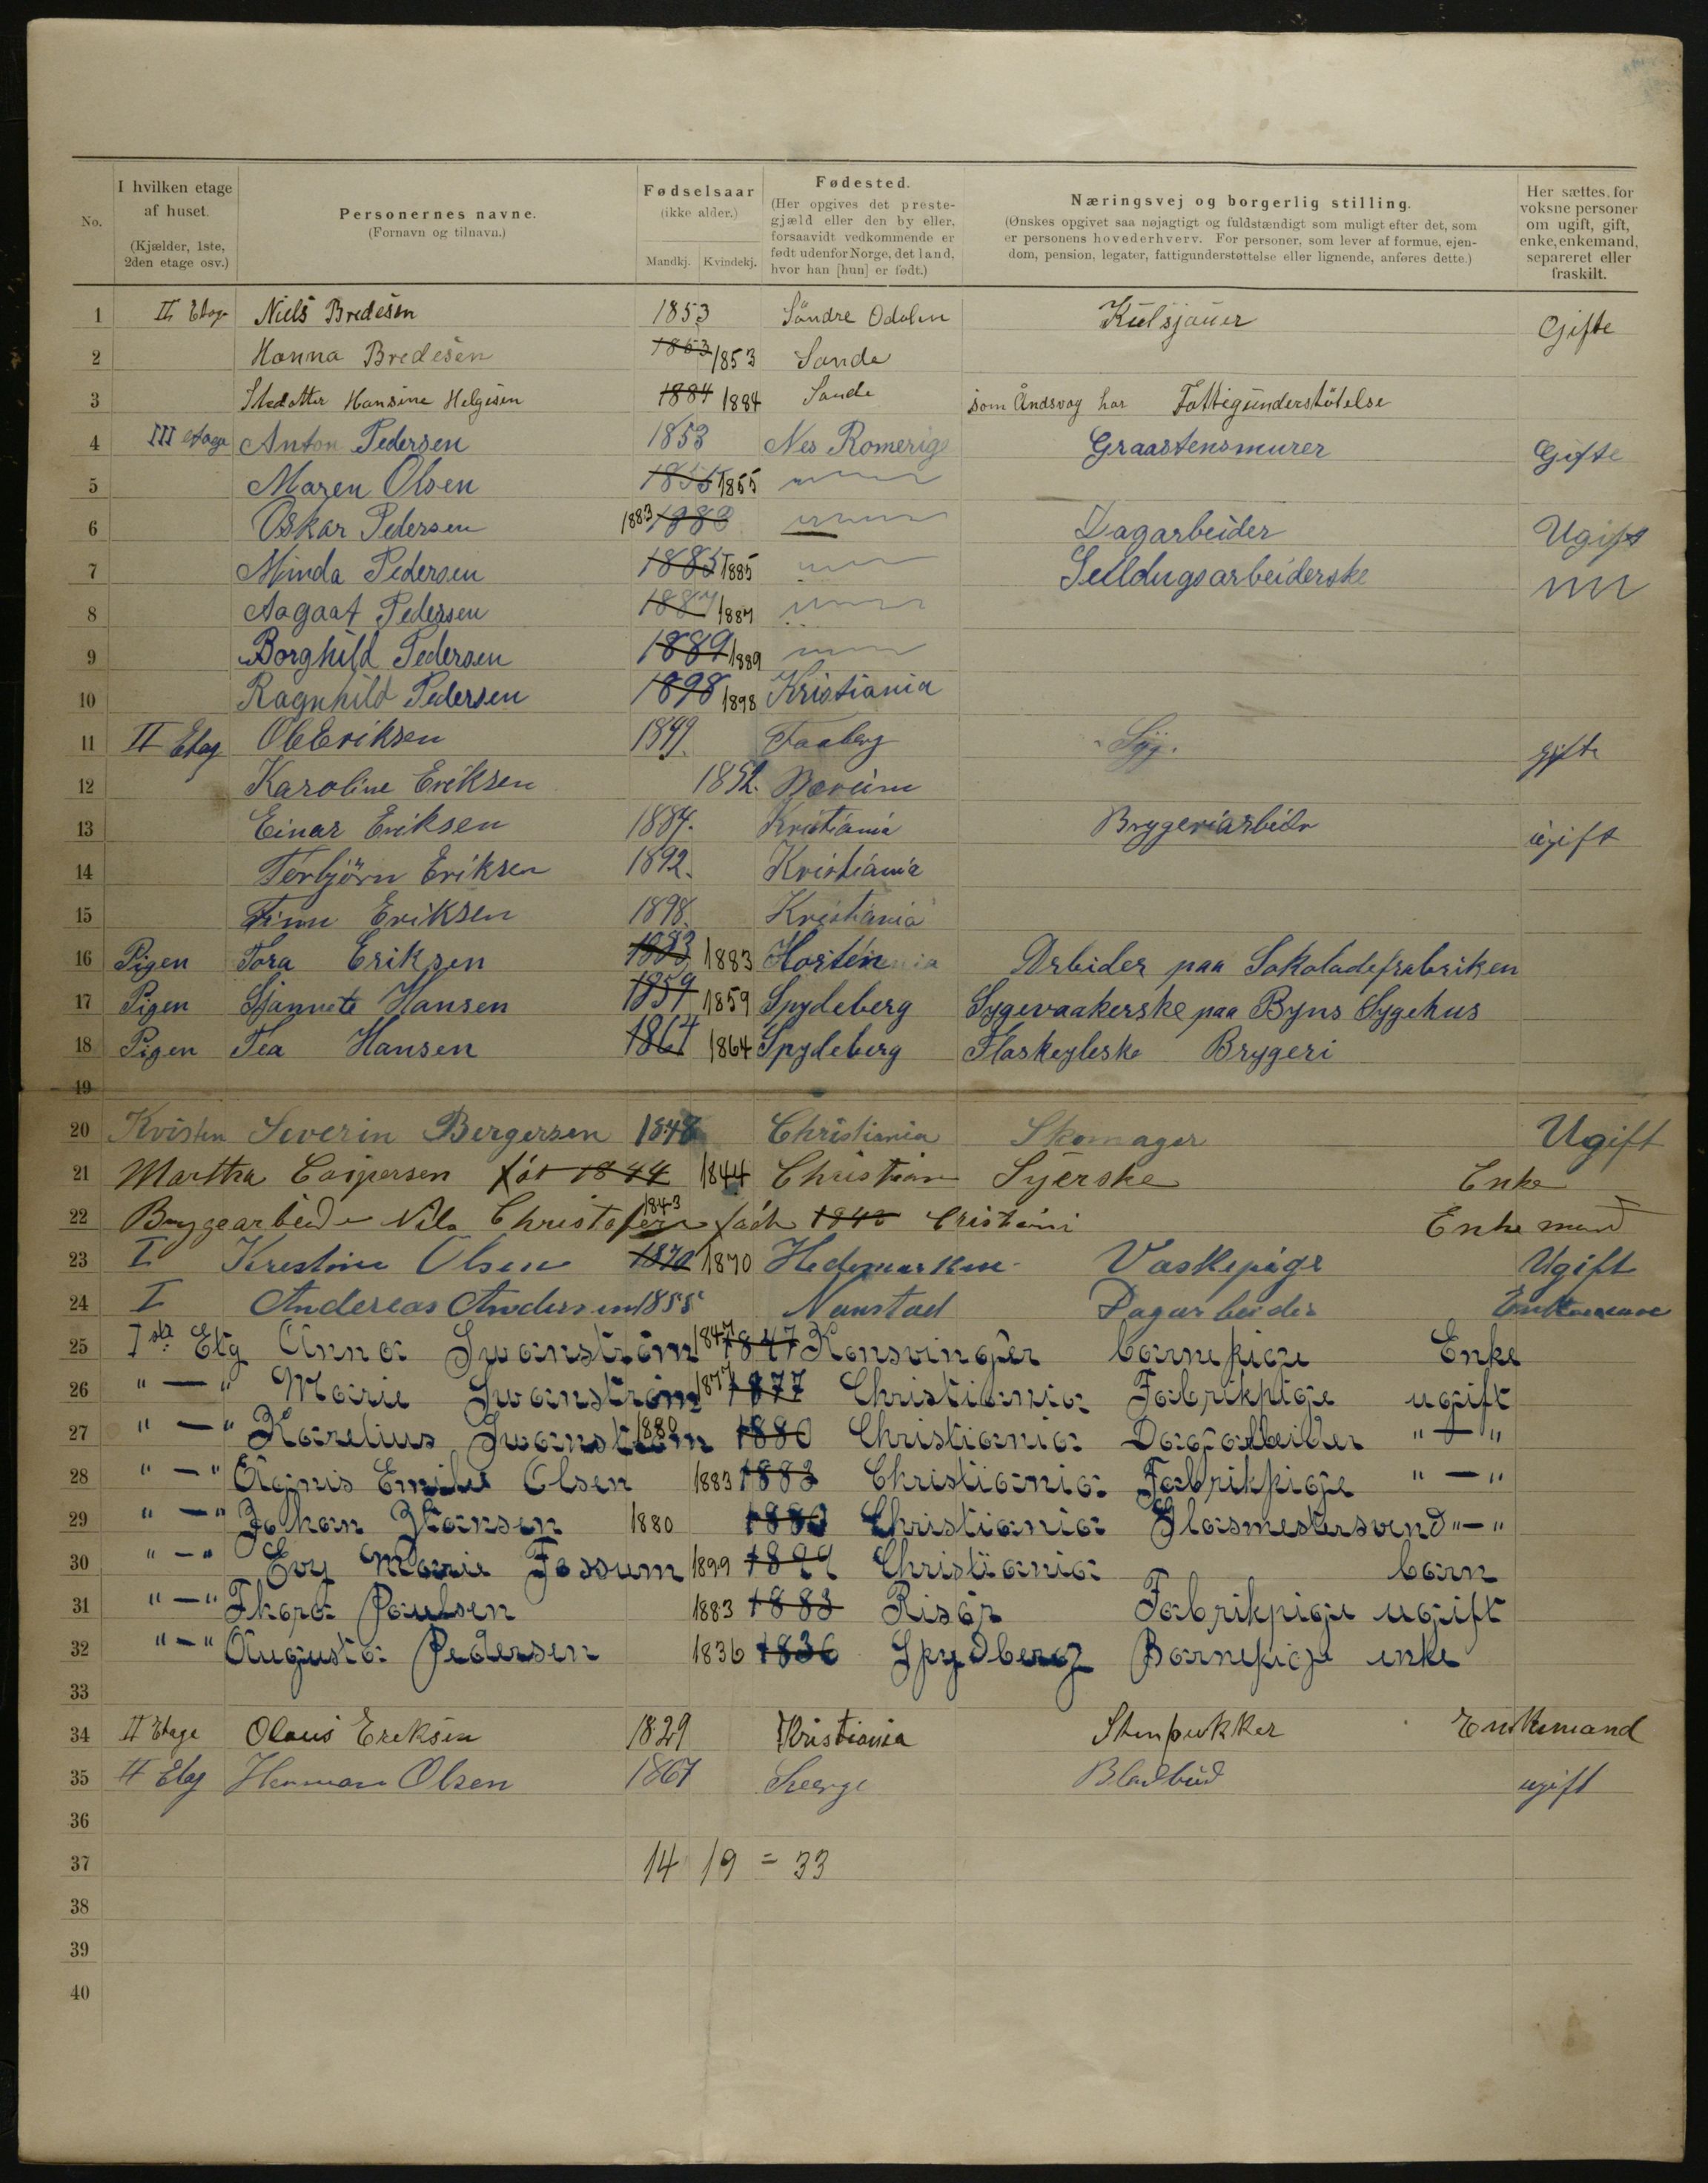 No.
I hvilken etage af huset. (Kjælder, 1ste, 2den etage osv.)
Personernes navne. (Fornavn og tilnavn.)
Fødselsaar (ikke alder.) Mandkj. Kvindekj.
Fødested. (Her opgives det prestegjæld eller den by eller, forsaavidt vedkommende er født udenfor Norge, det land, hvor han [hun] er født.)
Næringsvej og borgerlig stilling. (Ønskes opgivet saa nøjagtigt og fuldstændigt som muligt efter det, som er personens hovederhverv. For personer, som lever af formue, ejendom, pension, legater, fattigunderstøttelse eller lignende, anføres dette.)
Her sættes, for voksne personer om ugift, gift, enke, enkemand, separeret eller fraskilt.
1 II Etage Niels Bredesen 1853 Söndre Odalen Kulsjauer Gifte
2 Hanna Bredesen 1853 1853 Sande
3 Stedatter Hansine Helgesen 1884 1884 Sande som Åndsvag har Fattigunderstötelse
4 III etage Anton Pedersen 1853 Nes Romerige Graastensmurer Gifte
5 Maren Olsen 1855 1855
6 Oskar Pedersen 1883 1883 Dagarbeider Ugift
7 Minda Pedersen 1885 1885 Seildugsarbeiderske
8 Aagaat Pedersen 1887 1887
9 Borghild Pedersen 1889 1889
10 Ragnhild Pedersen 1898 1898 Kristiania
11 II Etag Ole Eriksen 1849. Faaberg Syg. gifte
12 Karoline Eriksen 1852. Bærum
13 Einar Eriksen 1884. Kristiania Brygeriarbeidr ugift
14 Torbjörn Eriksen 1892. Kristiania
15 Finn Eriksen 1898. Kristiania
16 Pigen Tora Eriksen 1883 1883 Horten Arbeider paa Sokoladefrabriken
17 Pigen Sjannete Hansen 1859 1859 Spydeberg Sygevaakerske paa Byns Sygehus
18 Pigen Tea Hansen 1864 1864 Spydeberg Flaskeyleske Brygeri
19
20 Kvisten Severin Bergersen 1848 Christiania Skomager Ugift
21 Martha Caspersen föt 1844 1844 Christian Syerske Enke
22 Brygearbeider Nils Christofersen 1843 föch 1843 Cristiani Enke mand
23 I Krestine Olsen 1870 1870 Hedemarken Vaskepige Ugift
24 I Andereas Andersen 1855 Nanstad Dagarbeider Enkemane
25 1ste Etg Anna Swanström 1847 1847 Konsvinger barnepige Enke
26 " — " Marie Swanström 1877 1877 Christiania Fabrikpige ugift
27 " — " Karelius Swanström 1880 1880 Christiania Dagarbeider " — "
28 " — " Agnis Emilie Olsen 1883 1883 Christiania Fabrikpige " — "
29 " — " Johan Hansen 1880 1880 Christiania Glasmestersvend " — "
30 " — " Evy Marie Fossum 1899 1899 Christiania barn
31 " — " Thora Paulsen 1883 1883 Risör Fabrikpige ugift
32 " — " Augusta Pedersen 1836 1836 Spydberg Barnepige enke
33
34 II Etage Olaus Ereksen 1829 Kristiania Stenpukker Enkemand
35 II Etag Herman Olsen 1867 Sverge Bladbud ugift
36
37 14 19 = 33
38
39
40